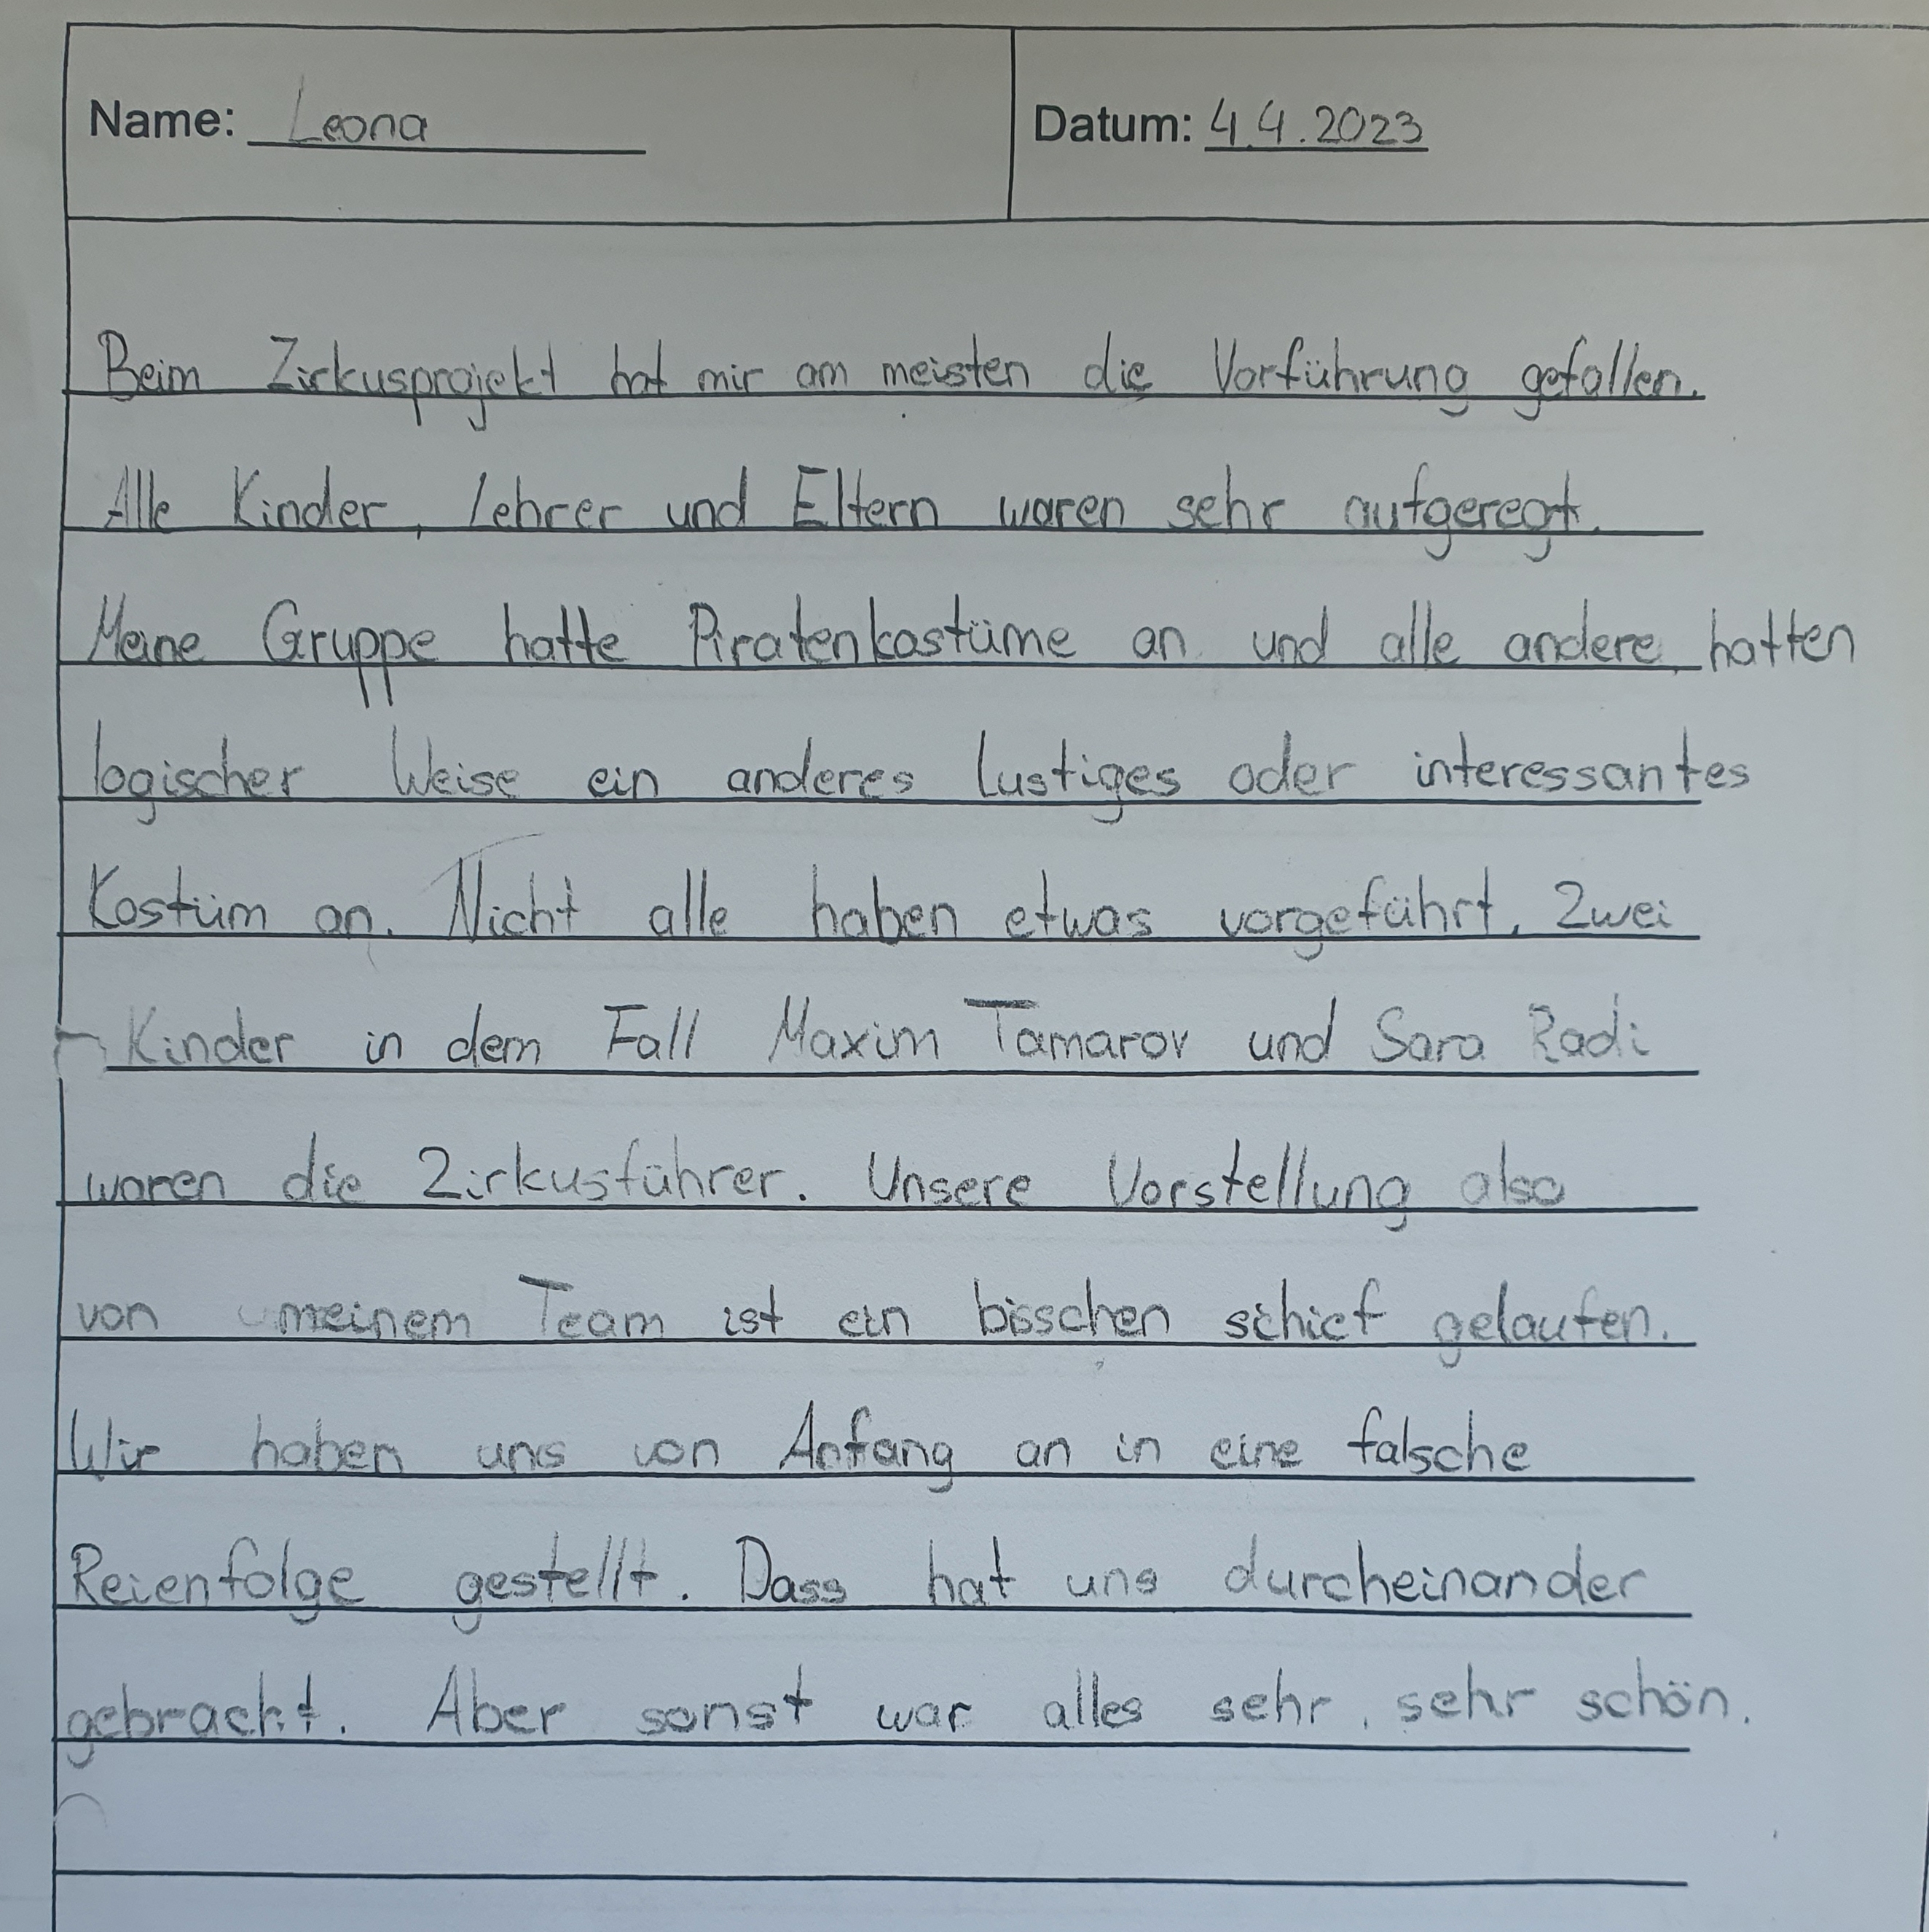 Name: Leona Datum: 4.4.2023
Beim Zirkusprojekt hat mir am meisten die Vorführung gefallen.
Alle Kinder, Lehrer und Eltern waren sehr aufgeregt.
Meine Gruppe hatte Piratenkostüme an und alle andere hatten
logischer Weise ein anderes lustiges oder interessantes
Kostüm an. Nicht alle haben etwas vorgeführt. Zwei
Kinder in dem Fall Maxim Tamarov und Sara Radi
waren die Zirkusführer. Unsere Vorstellung also
von meinem Team ist ein bisschen schief gelaufen.
Wir haben uns von Anfang an in eine falsche
Reienfolge gestellt. Dass hat uns durcheinander
gebracht. Aber sonst war alles sehr, sehr schön.